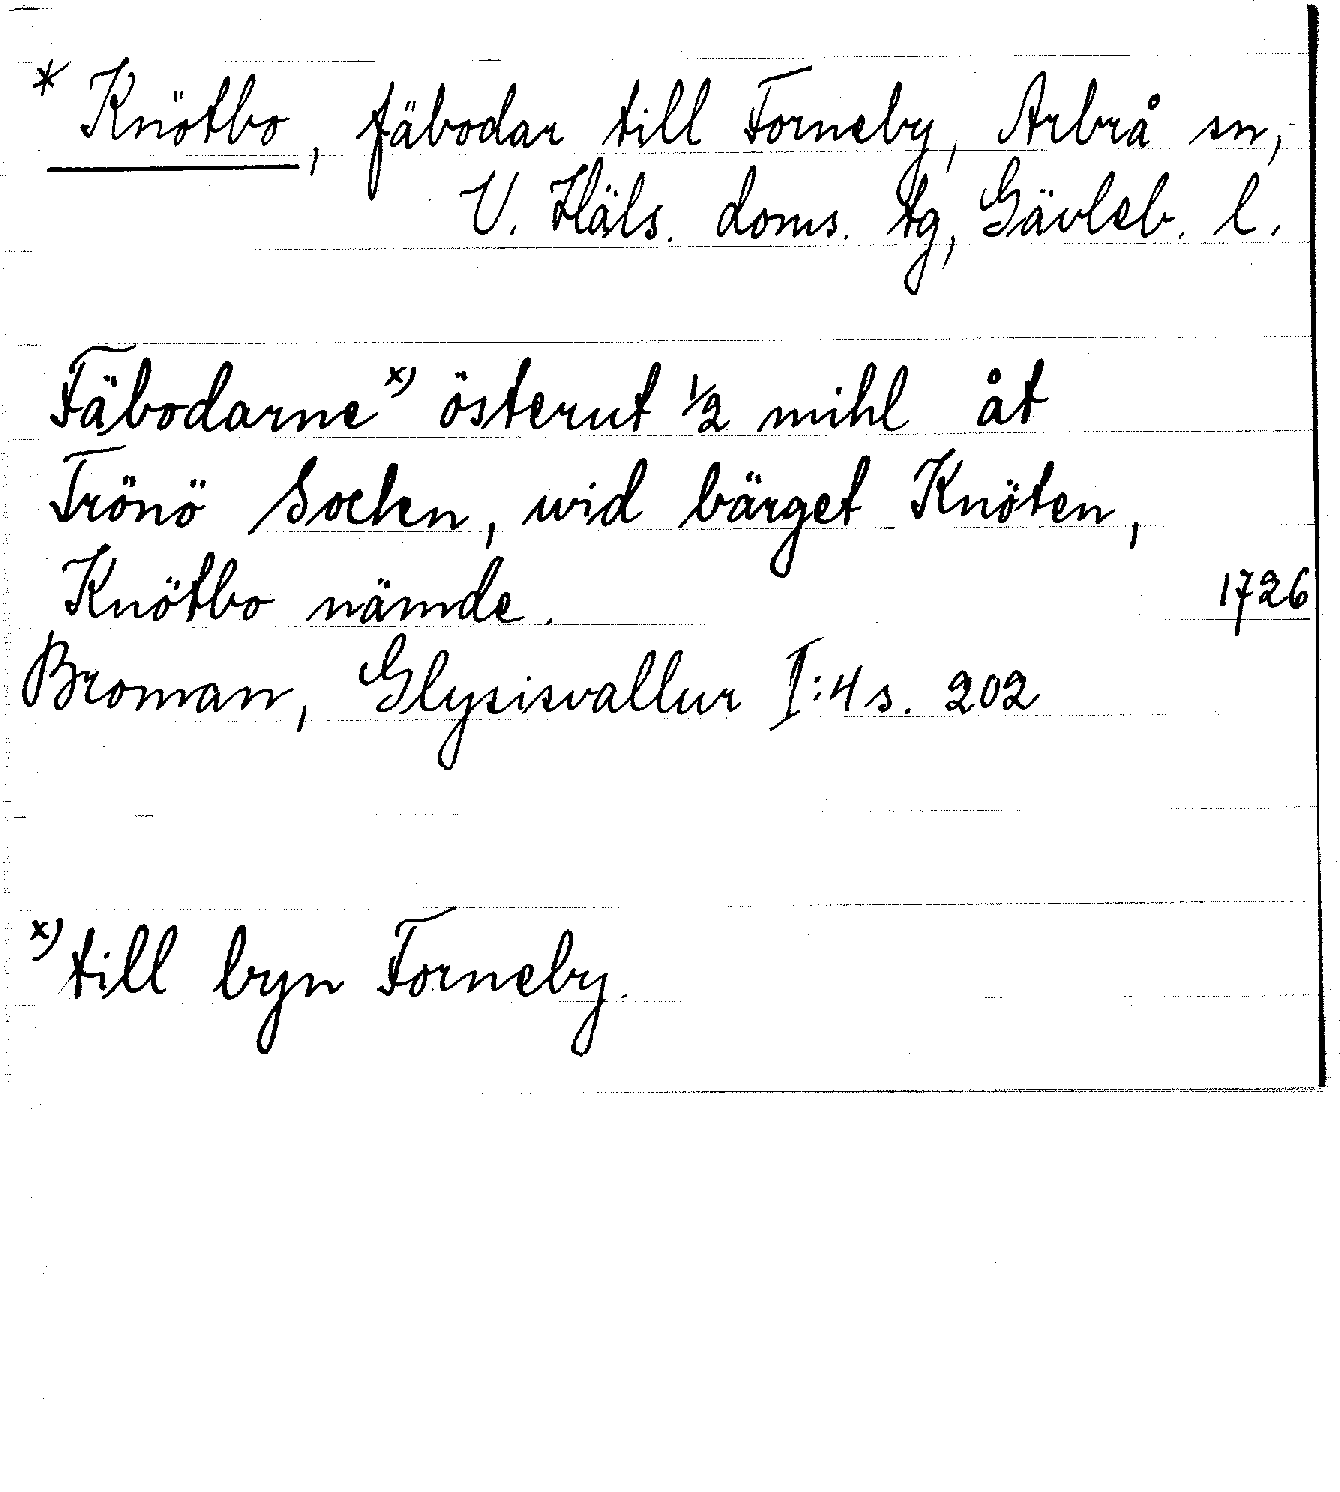 * Knötbo, fäbodar till Forneby, Arbrå sn,
V. Häls. doms. tg, Gävleb. l.
Fäbodarne x) österut 1/2 mihl åt
Trönö Sochn, wid bärget Knöten,
Knötbo nämde. 1726
Broman, Glysisvallur I:4 s. 202
x) till byn Forneby.